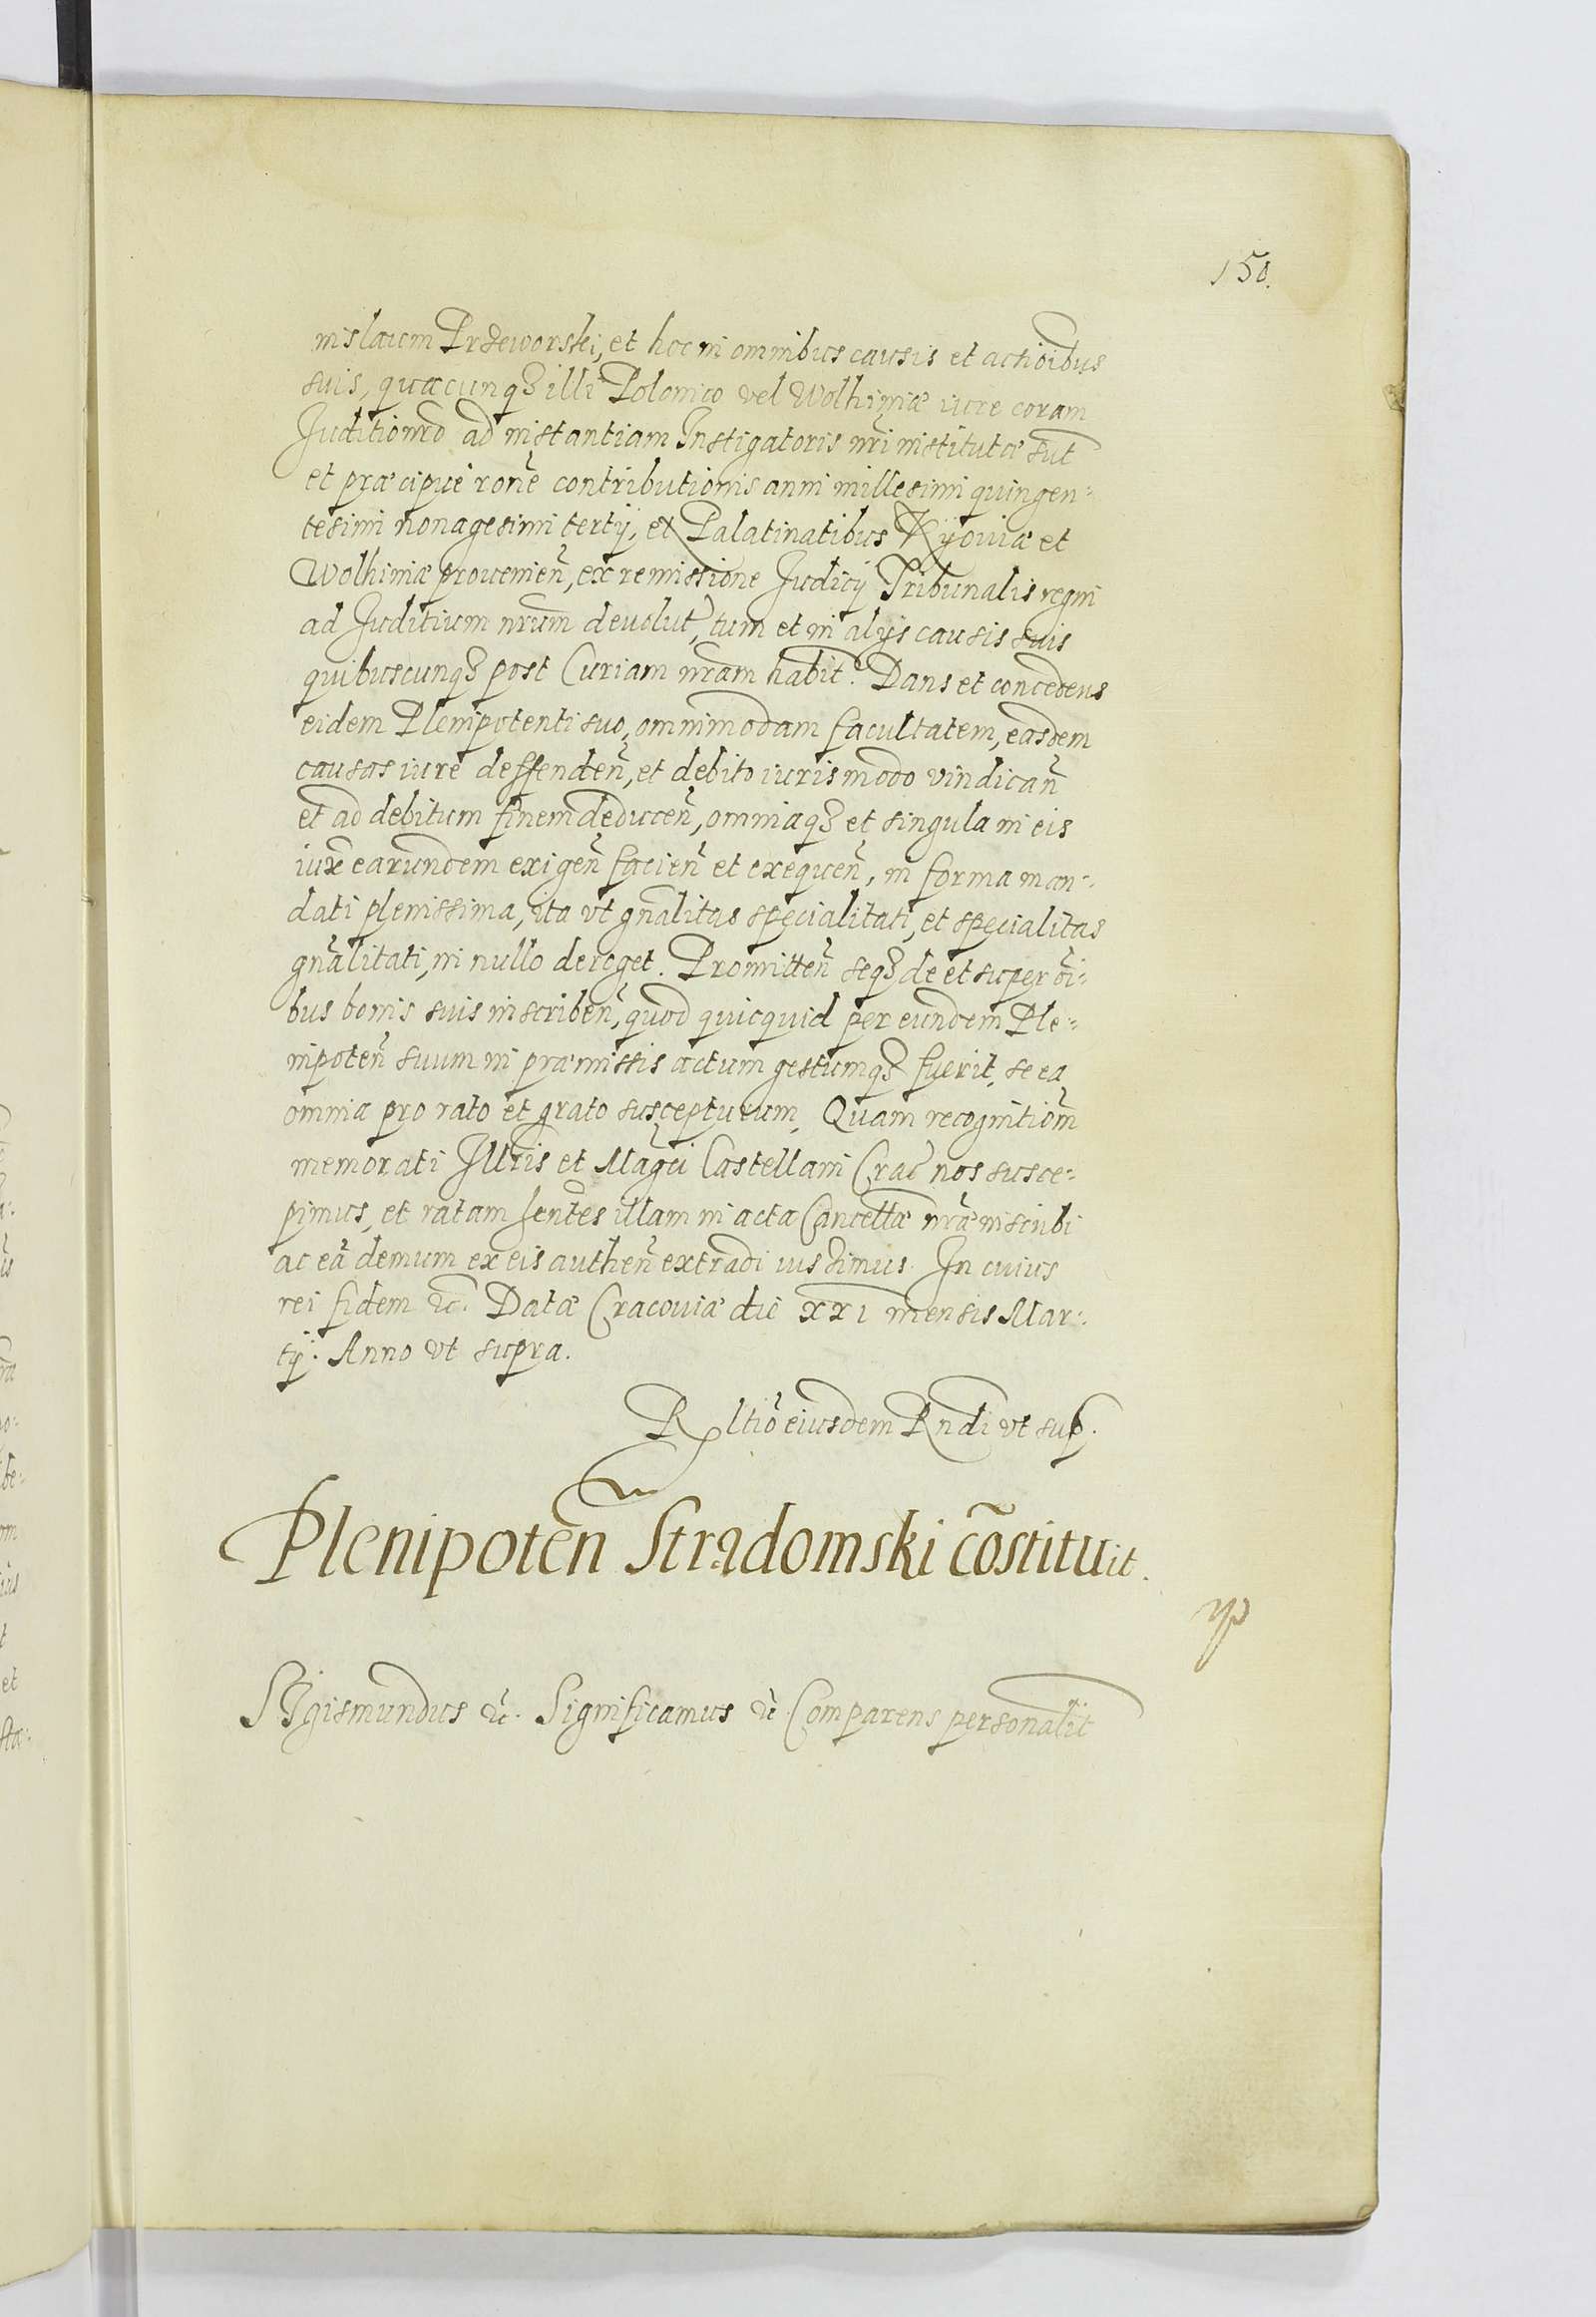 150.
nislaum Przeworski, et hoc in omnibus causis et actiōibus
suis, quæcunqȝ illi Polonico vel Wolhiniæ iure coram
Juditio nrō ad instantiam Instigatoris nrī institutæ sūt
et præcipue rōne contributionis anni millesimi quingen:
tesimi nonagesimi tertij, ex Palatinatibus Kÿoviæ et
Wolhiniæ prouenieñ, ex remissione Judicij Tribunalis regni
ad Juditium nrūm deuolut, tum et in alijs causis suis
quibuscunqȝ post Curiam nrām habit. Dans et concedens
eidem Plenipotenti suo, omnimodam facultatem, easdem
causas iure deffendeñ, et debito iuris modo vindicañ
et ad debitum finem deduceñ, omniaqȝ et singula in eis
iuxē earundem exigeñ facieñ et exequeñ, in forma man:
dati plenissima, ita vt gnālitas specialitati, et specialitas
gnālitati, in nullo deroget. Promitteñ seqȝ de et super ōi:
bus bonis suis inscribeñ, quod quicquid per eundem Ple:
nipoteñ suum in præmissis actum gestumqȝ fuerit, se ea
omnia pro rato et grato suscepturum, Quam recognitiōm
memorati Illris et Magci Castellani Crac nos susce:
pimus, et ratam hentes illam in acta Cancellæ nræ inscribi
ac eā demum ex eis autheñ extradi iussimus. In cuius
rei fidem etc. Datæ Cracouiæ die XXI mensis Mar:
tij. Anno vt supra.
Rltiō eiusdem Rndi vt sup.
Plenipoteñ Stradomski cōstituit.
SIgismundus etc. Significamus etc. Comparens personalit